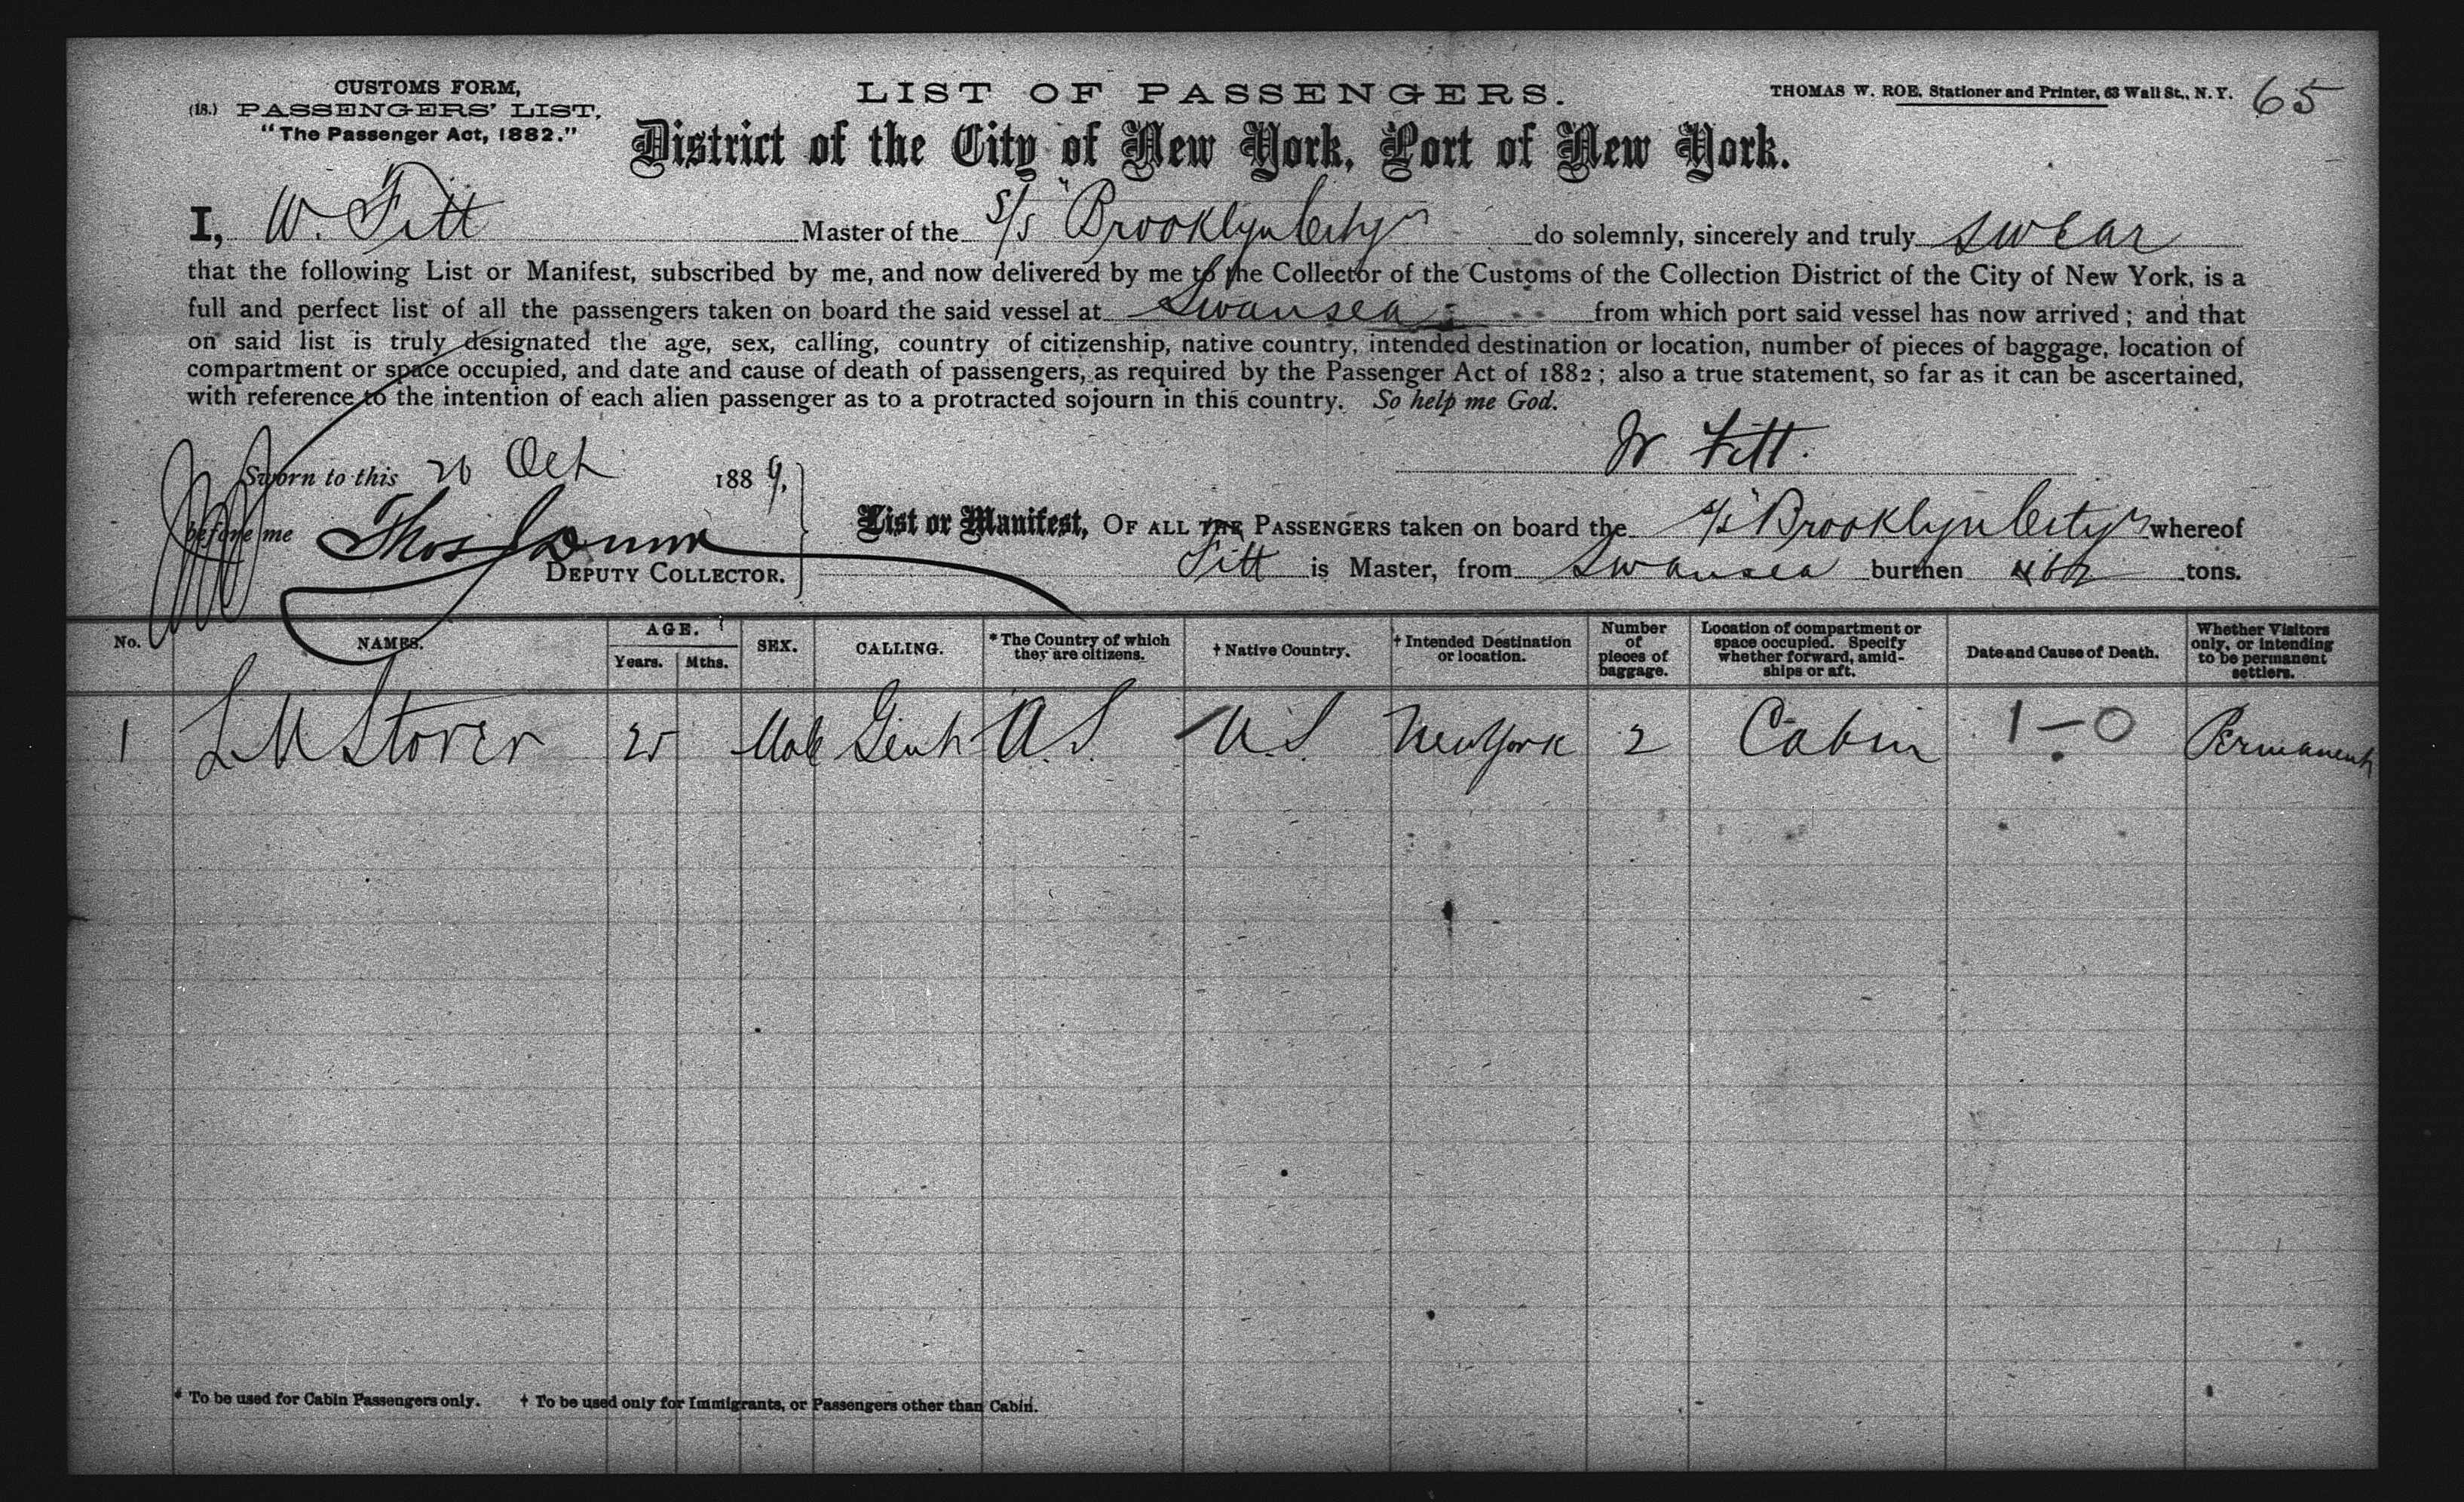 CUSTOMS FORM,
(18.) PASSENGERS' LIST,
"The Passenger Act, 1882."
LIST OF PASSENGERS.
THOMAS W. ROE, Stationer and Printer, 63 Wall St., N. Y. 65
District of the City of New York, Port of New York.
I, W. Fitt Master of the S/S "Brooklyn City" do solemnly, sincerely and truly swear
that the following List or Manifest, subscribed by me, and now delivered by me to the Collector of the Customs of the Collection District of the City of New York, is a
full and perfect list of all the passengers taken on board the said vessel at Swansea from which port said vessel has now arrived; and that
on said list is truly designated the age, sex, calling, country of citizenship, native country, intended destination or location, number of pieces of baggage, location of
compartment or space occupied, and date and cause of death of passengers, as required by the Passenger Act of 1882; also a true statement, so far as it can be ascertained,
with reference to the intention of each alien passenger as to a protracted sojourn in this country. So help me God.
W Fitt.
Sworn to this Oct 1889,
before me Thos
DEPUTY COLLECTOR.
List or Manifest, OF ALL THE PASSENGERS taken on board the S/S "Brooklyn City" whereof
Fitt is Master, from Swansea burthen tons.
No. NAMES. AGE. Years. Mths. SEX. CALLING. * The Country of which they are citizens. † Native Country. † Intended Destination or location. Number of pieces of baggage. Location of compartment or space occupied. Specify whether forward, amid-ships or aft. Date and Cause of Death. Whether Visitors only, or intending to be permanent settlers.
1 L M Storer 25 Male Gent U.S U.S New York 2 Cabin 1-0 Permanent
* To be used for Cabin Passengers only. † To be used only for Immigrants, or Passengers other than Cabin.